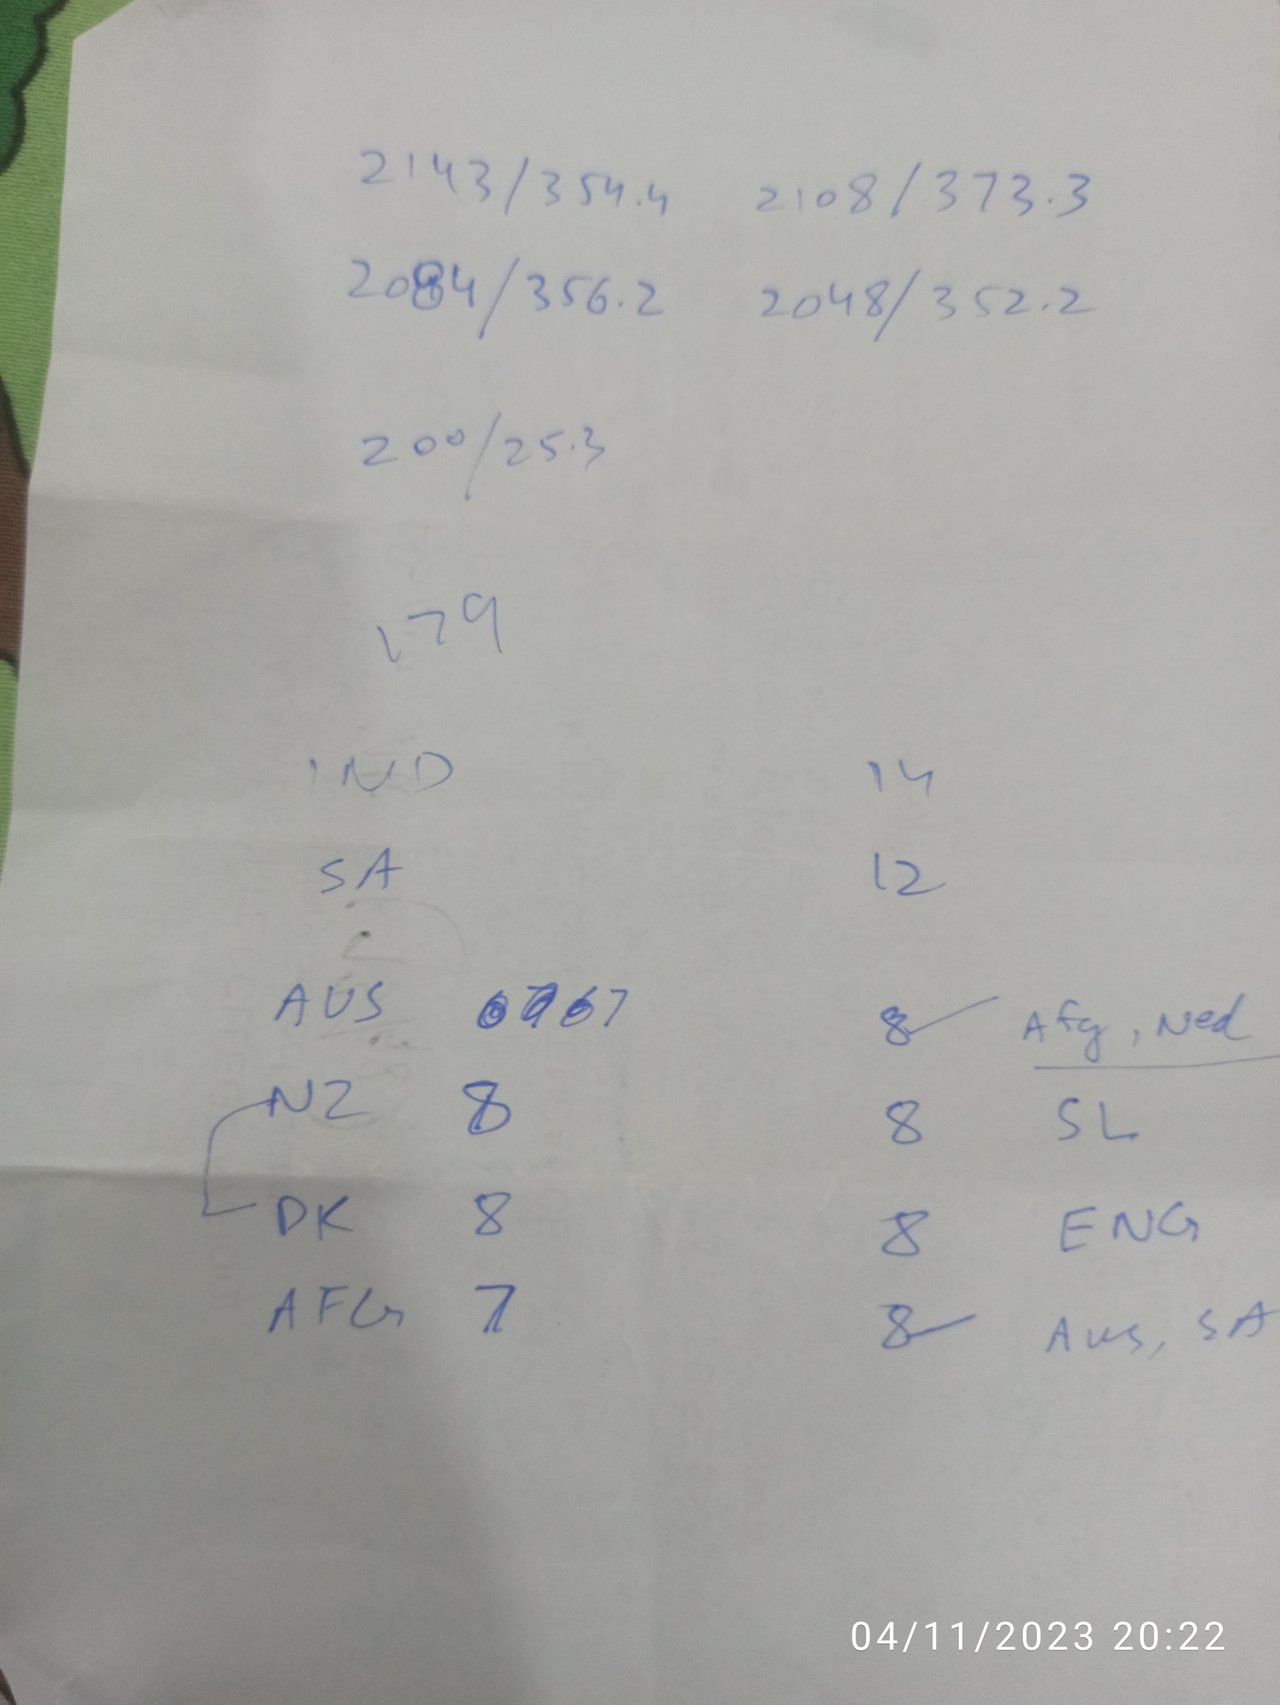 2143/354.4 2108/373.3
2084/356.2 2048/352.2
200/25.3
179
IND 14
SA 12
AUS 7 8 Afg, Ned
NZ 8 8 SL
DK 8 8 ENG
AFG 7 8 Aus, SA
04/11/2023 20:22